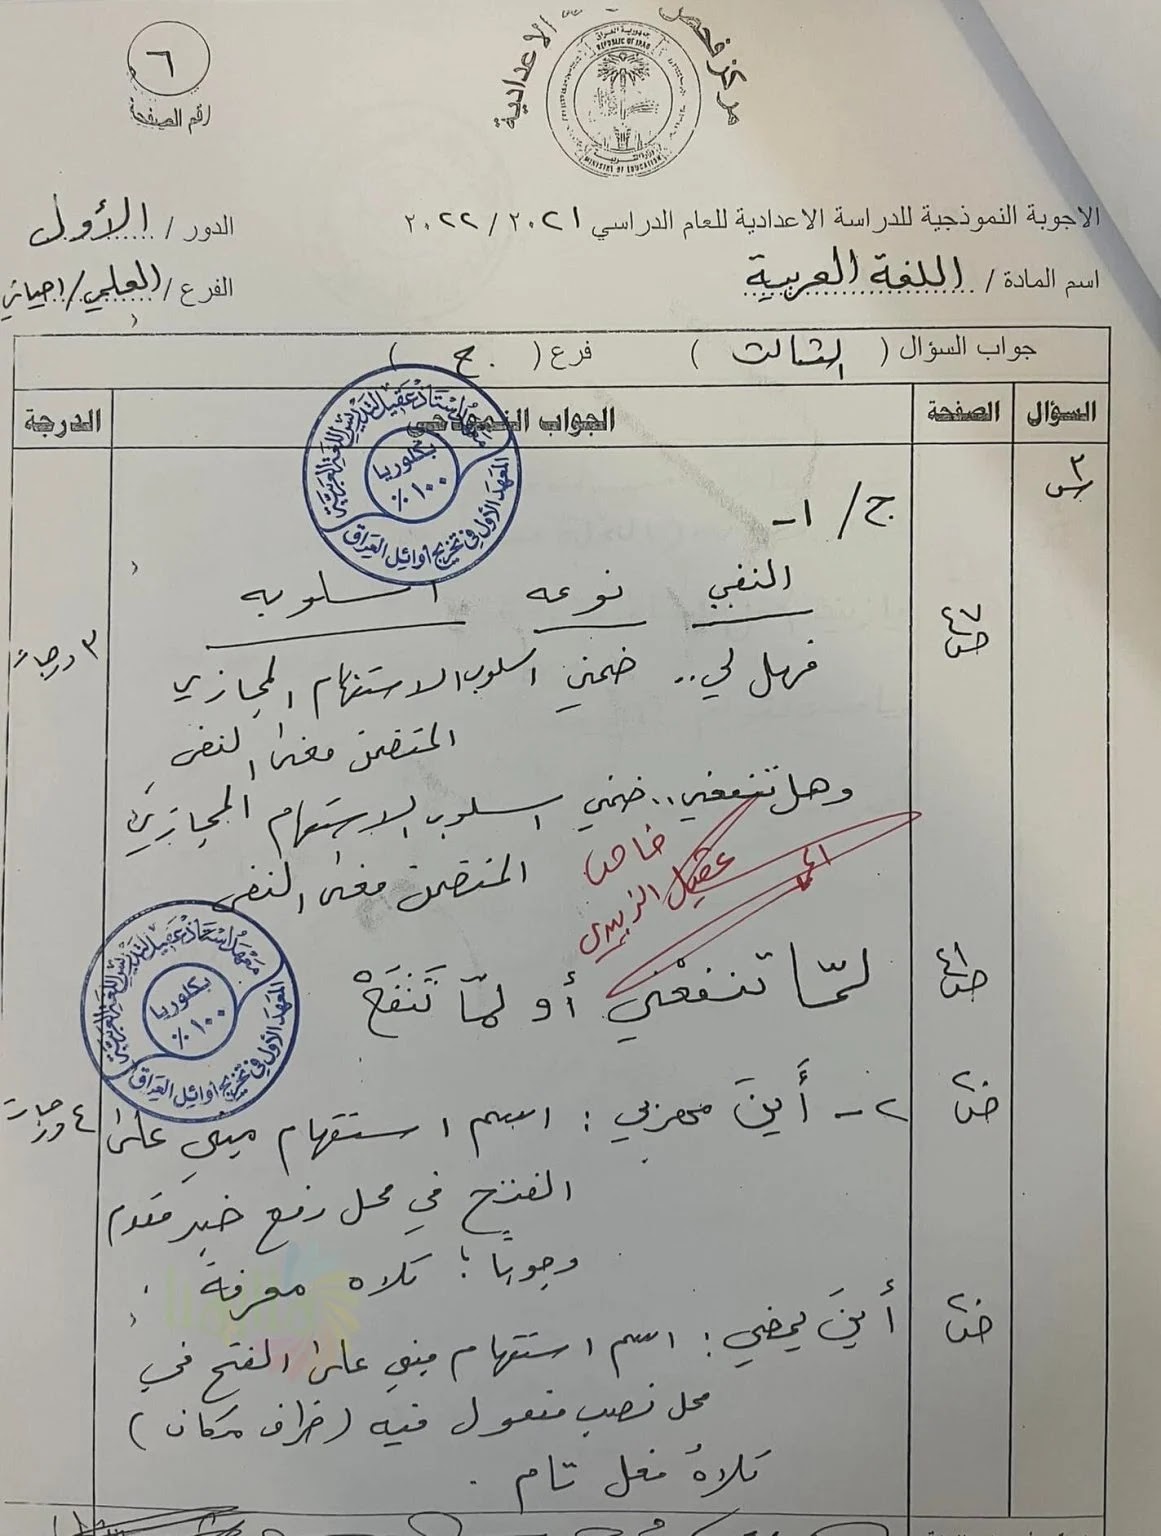 مركز فحص
الاعدادية
جمهورية العراق
REPUBLIC OF IRAQ
MINISTRY OF EDUCATION
٦
رقم الصفحة
الاجوبة النموذجية للدراسة الاعدادية للعام الدراسي ٢٠٢١ / ٢٠٢٢
الدور / الأول
اسم المادة / اللغة العربية
الفرع / العلمي / احيائي
جواب السؤال ( الثالث ) فرع ( ج )
السؤال الصفحة الجواب النموذجي الدرجة
س٣
ج / ١-
النفي نوعه اسلوبه
ص٤٧
٣ درجات
فهل لي.. ضمني اسلوب الاستفهام المجازي
المتضمن معنى النفي
وهل تنفعني.. ضمني اسلوب الاستفهام المجازي
المتضمن معنى النفي
خاص
عقيل الزبيدي
ص٤١
لمّا تنفعْني أو لمّا تَنفَعْ
ص٢٠
٢- أَينَ مهربي : اسم استفهام مبني على
٤ درجات
الفتح في محل رفع خبر مقدم
وجوبًا ؛ تلاه معرفة .
ص٢٠
أينَ يمضي : اسم استفهام مبني على الفتح في
محل نصب مفعول فيه ( ظرف مكان )
تلاهُ فعل تام .
معهد استاذ عقيل لتدريس اللغة العربية
بكلوريا
١٠٠ %
المعهد الأول في تخريج اوائل العراق
معهد استاذ عقيل لتدريس اللغة العربية
بكلوريا
١٠٠ %
المعهد الأول في تخريج اوائل العراق